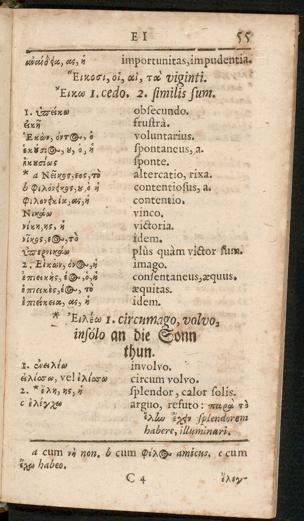 E I 55
ἀναίδεια, ας, ἡ importunitas, impudentia.
Ἔικοσι, οἱ, αἱ, τὰ viginti.
Ἔικω 1. cedo. 2. similis sum.
1. ὑπείκω obsecundo.
εἰκῆ frustrà.
Ἑκὼν, όντ⊙, ὁ voluntarius.
ἑκούσι⊙, ου, ὁ, ἡ spontaneus, a.
ἑκουσίως sponte.
* a Νεῖκος, εος, τὸ altercatio, rixa.
b φιλόνεικος, ου, ὁ ἡ contentiosus, a.
φιλονεικία, ας, ἡ contentio.
Νικάω vinco.
νίκη, ης, ἡ victoria.
νῖκος, ε⊙, τὸ idem.
ὑπερνικάω plùs quàm victor sum.
2. Εἰκὼν, όν⊙, ἡ imago.
ἐπιεικὴς, έ⊙, ὁ, ἡ consentaneus, æquus.
ἐπιεικὲς, έ⊙, τὸ æquitas.
ἐπιείκεια, ας, ἡ idem.
* Εἱλέω 1. circumago, volvo,
insolo an die Sonn
thun.
1. ἐνειλέω involvo.
εἱλίσσω, vel ἑλίσσω circum volvo.
2. * ἕλη, ης, ἡ splendor, calor solis.
c ἐλέγχω arguo, refuto: παρὰ τὸ
ἕλην ἔχειν splendorem
habere, illuminari.
a cum νὴ non. b cum φίλ⊙ amicus. c cum
ἔχω habeo.
C 4 ἔλεγ-